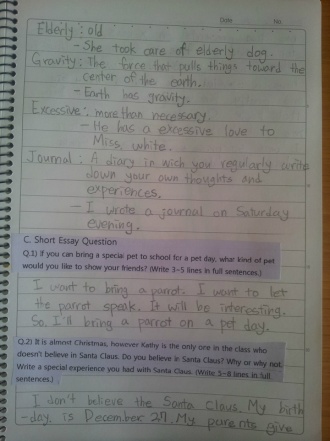 Date No.
Elderly : old
- She took care of elderly dog.
Gravity : The force that pulls things toward the
center of the earth.
- Earth has gravity.
Excessive : more than necessary.
- He has a excessive love to
Miss. white.
Journal : A diary in wich you regularly write
down your own thoughts and
experiences.
- I wrote a journal on Saturday
evening.
C. Short Essay Question
Q.1) If you can bring a special pet to school for a pet day, what kind of pet
would you like to show your friends? (Write 3~5 lines in full sentences.)
I want to bring a parrot. I want to let
the parrot speak. It will be interesting.
So, I'll bring a parrot on a pet day.
Q.2) It is almost Christmas, however Kathy is the only one in the class who
doesn't believe in Santa Claus. Do you believe in Santa Claus? Why or why not.
Write a special experience you had with Santa Claus. (Write 5~8 lines in full
sentences.)
I don't believe the Santa Claus. My birth
-day. is December 27. My parents give